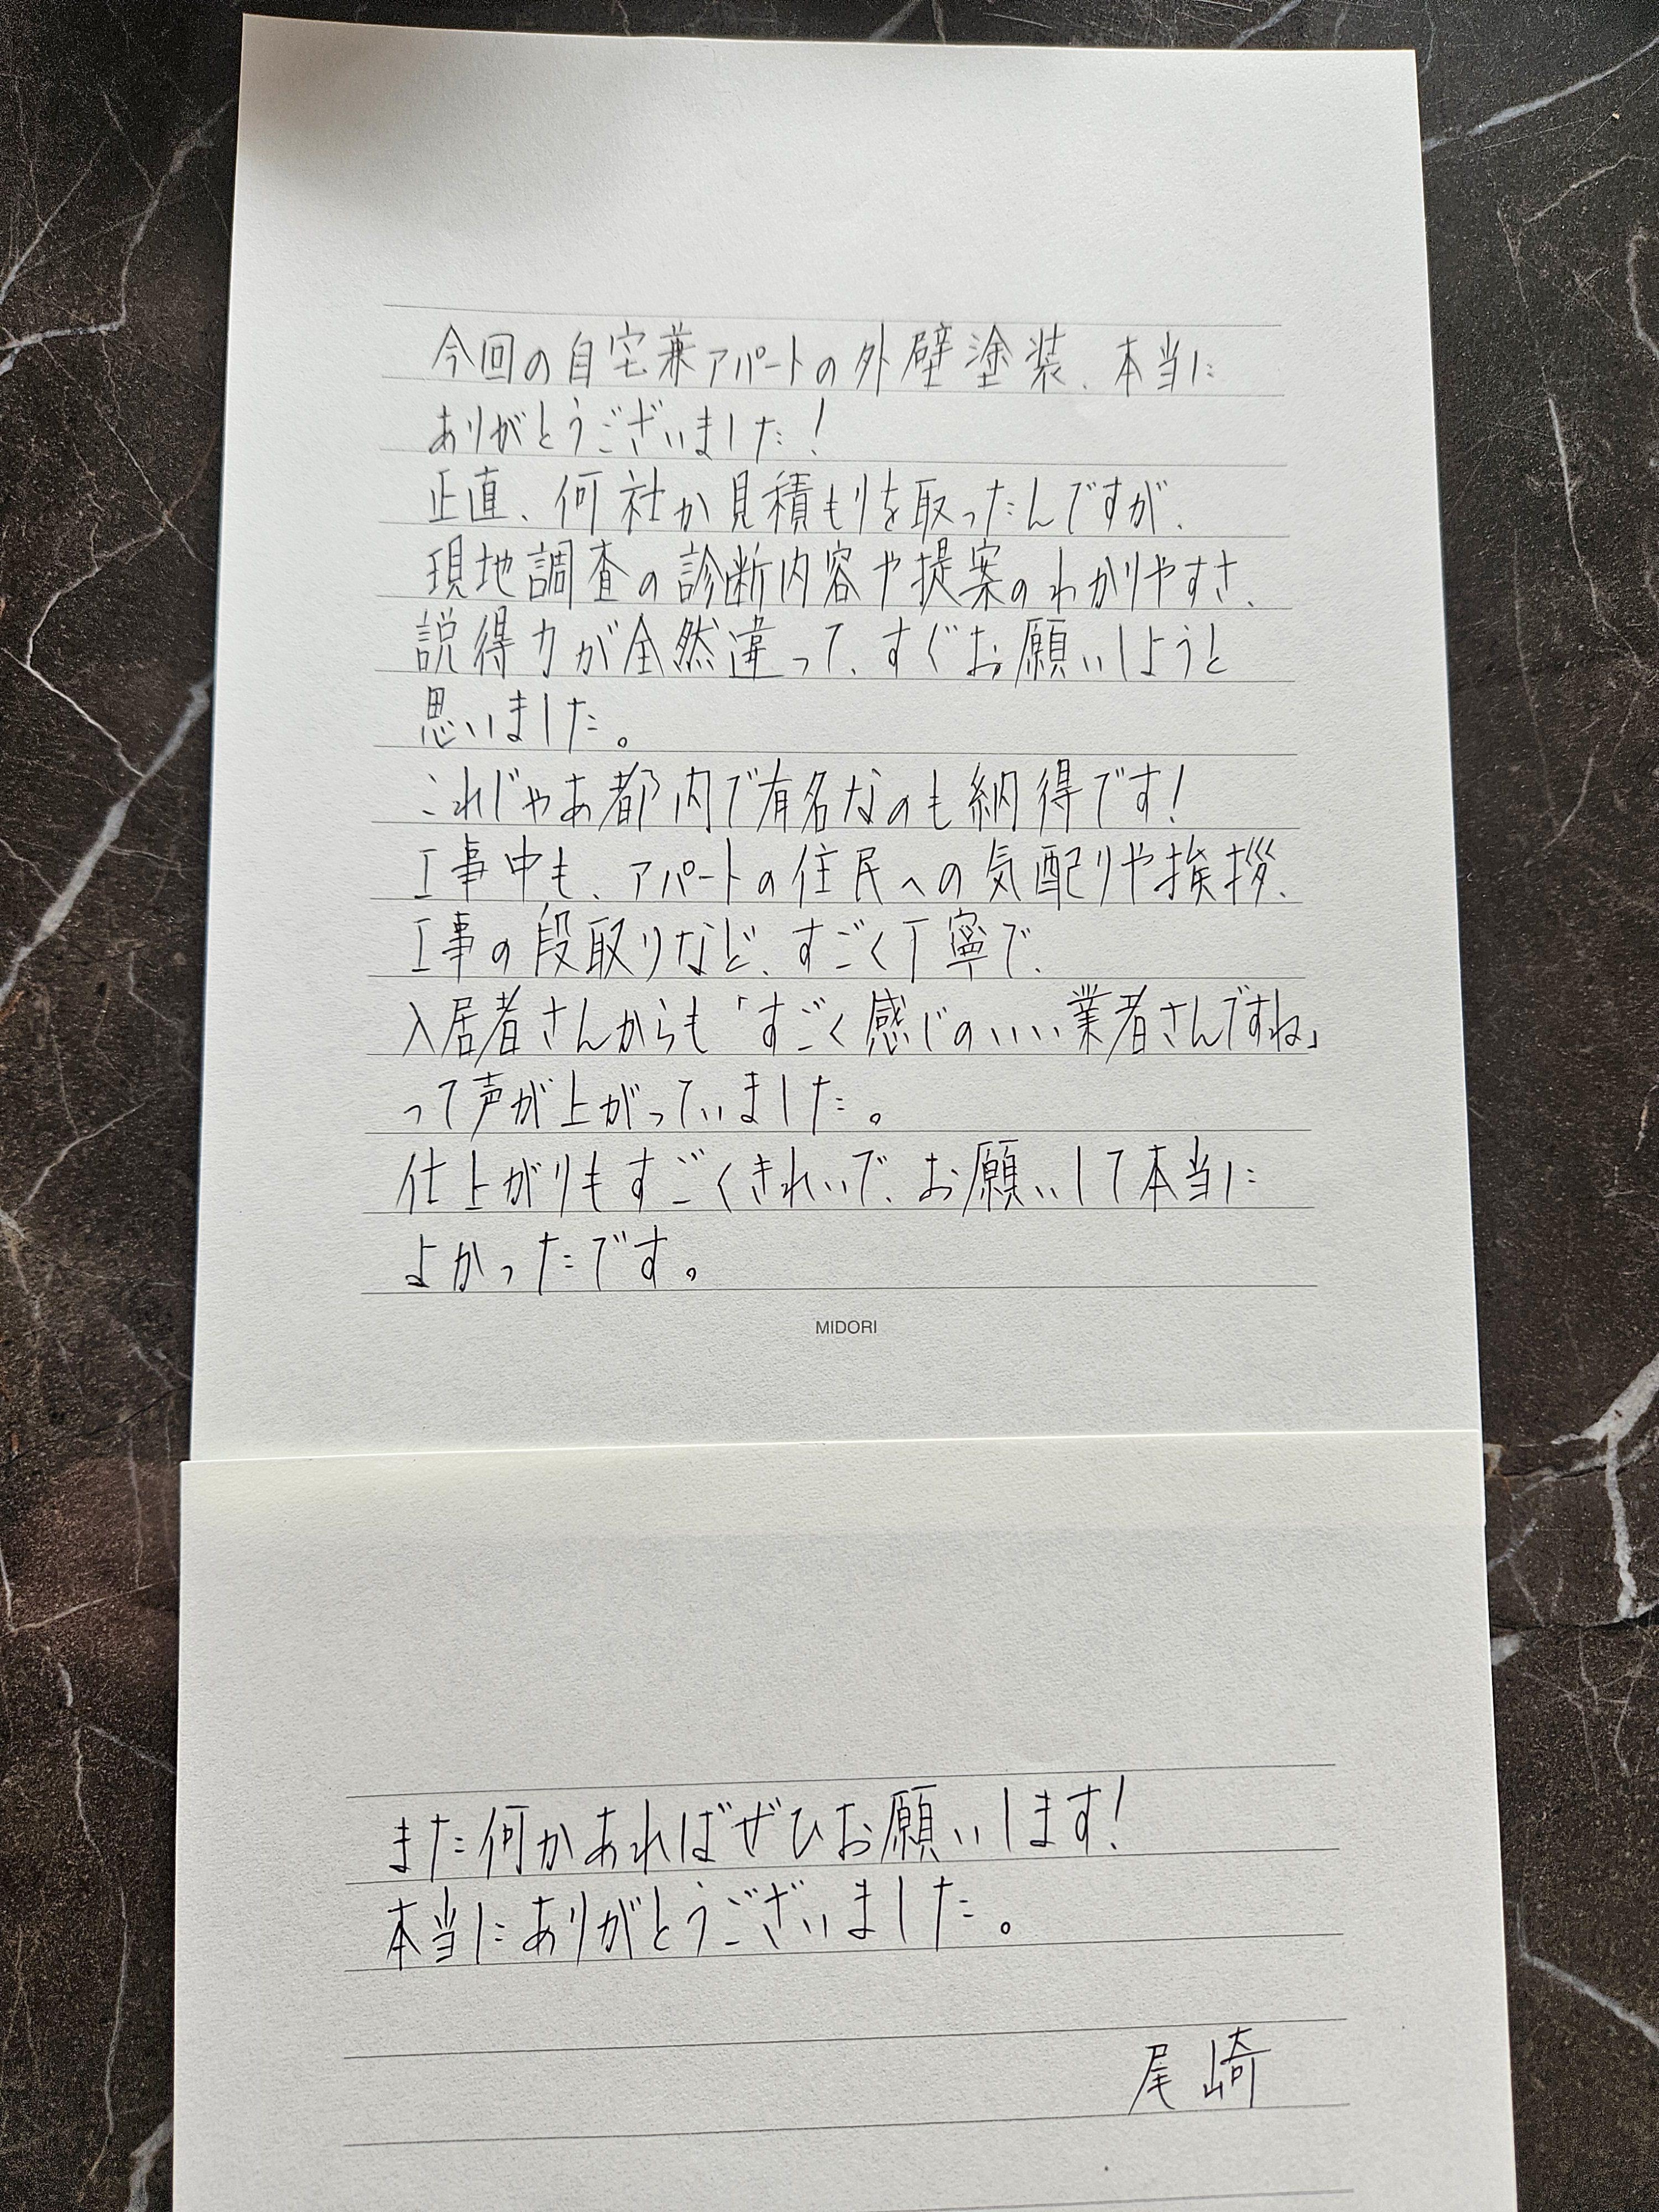 今回の自宅兼アパートの外壁塗装、本当に
ありがとうございました!
正直、何社か見積もりを取ったんですが、
現地調査の診断内容や提案のわかりやすさ、
説得力が全然違って、すぐお願いしようと
思いました。
これじゃあ都内で有名なのも納得です!
工事中も、アパートの住民への気配りや挨拶、
工事の段取りなど、すごく丁寧で、
入居者さんからも「すごく感じのいい業者さんですね」
って声が上がっていました。
仕上がりもすごくきれいで、お願いして本当に
よかったです。
MIDORI
また何かあればぜひお願いします!
本当にありがとうございました。
尾崎